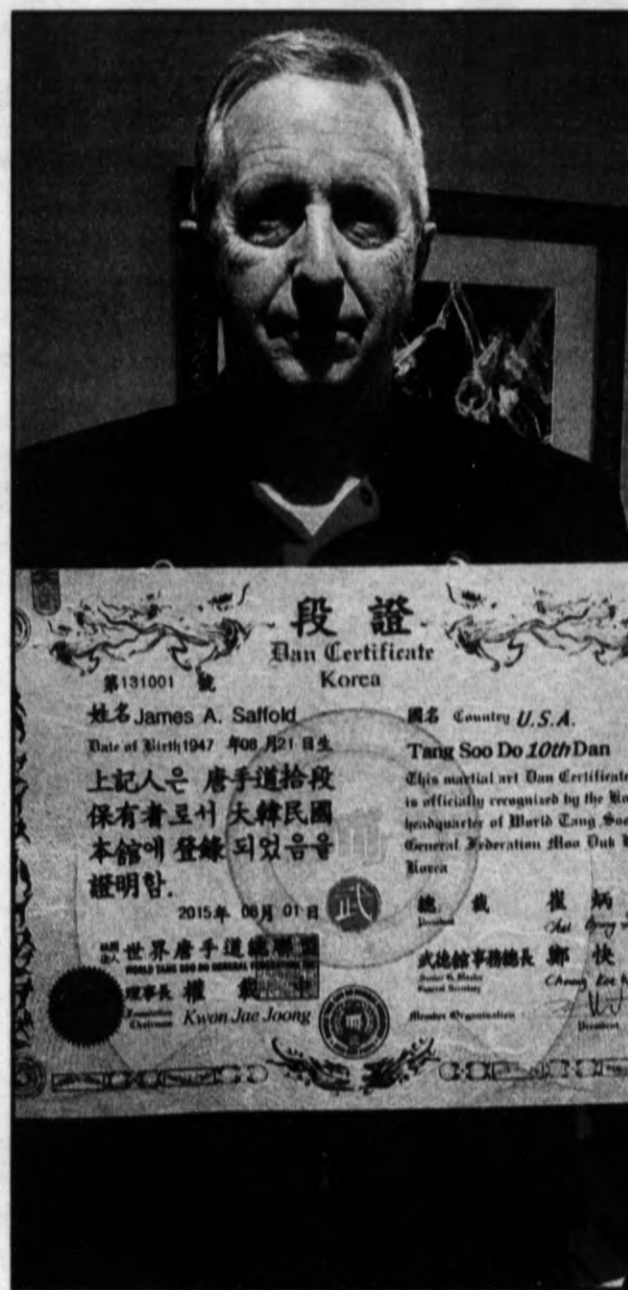 段 證
Dan Certificate
Korea
第131001 號
姓名 James A. Saffold
Date of Birth 1947 年08 月21 日生
上記人은 唐手道拾段
保有者로서 大韓民國
本館에 登錄 되었음을
證明함.
2015年 08月 01日
世界唐手道總聯盟
WORLD TANG SOO DO GENERAL FEDERATION
理事長 權 載 中
Foundation
Chairman Kwon Jae Joong
武
國名 Country U.S.A.
Tang Soo Do 10th Dan
This martial art Dan Certificate
is officially recognized by the
headquarter of World Tang Soo
General Federation Moo Duk
Korea
總 裁 崔 炳
President
武德館事務總長 鄭 快
General Secretary
Member Organization
President